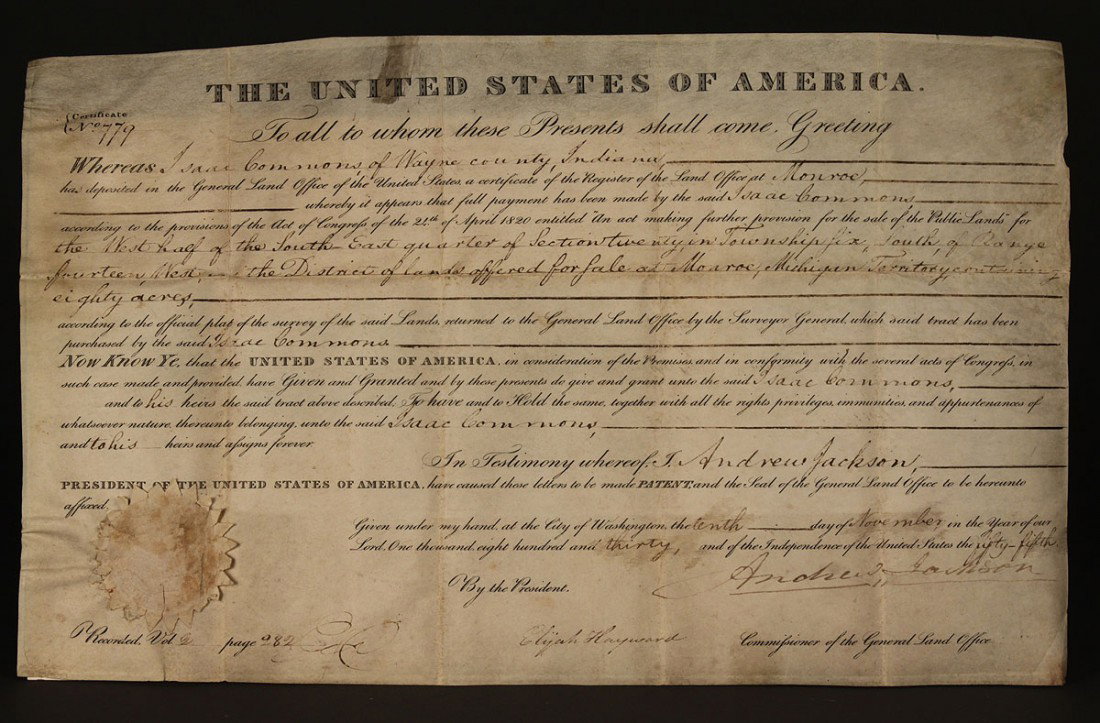 THE UNITED STATES OF AMERICA.
Certificate
No 779
To all to whom these Presents shall come, Greeting
Whereas Isaac Commons, of Wayne county, Indiana,
has deposited in the General Land Office of the United States, a certificate of the Register of the Land Office at Monroe,
whereby it appears that full payment has been made by the said Isaac Commons,
according to the provisions of the Act of Congress of the 24th of April 1820 entitled "An act making further provision for the sale of the Public Lands" for
the West half of the South-East quarter of Section twenty, in Township six, South, of Range
fourteen, West, in the District of lands offered for sale at Monroe, Michigan Territory, containing
eighty acres,
according to the official plat of the survey of the said Lands, returned to the General Land Office by the Surveyor General, which said tract has been
purchased by the said Isaac Commons
Now Know Ye, that the UNITED STATES OF AMERICA, in consideration of the Premises, and in conformity with the several acts of Congress, in
such case made and provided, have Given and Granted and by these presents do give and grant unto the said Isaac Commons,
and to his heirs the said tract above described. To have and to Hold the same, together with all the rights, privileges, immunities, and appurtenances of
whatsoever nature, thereunto belonging, unto the said Isaac Commons,
and to his heirs and assigns forever
In Testimony whereof, I, Andrew Jackson,
PRESIDENT OF THE UNITED STATES OF AMERICA, have caused these letters to be made PATENT, and the Seal of the General Land Office to be hereunto
affixed.
Given under my hand, at the City of Washington, the tenth day of November in the Year of our
Lord, One thousand, eight hundred and thirty, and of the Independence of the United States the fifty-fifth
Andrew Jackson
By the President.
Recorded, Vol 2 page 282
Elijah Hayward Commissioner of the General Land Office